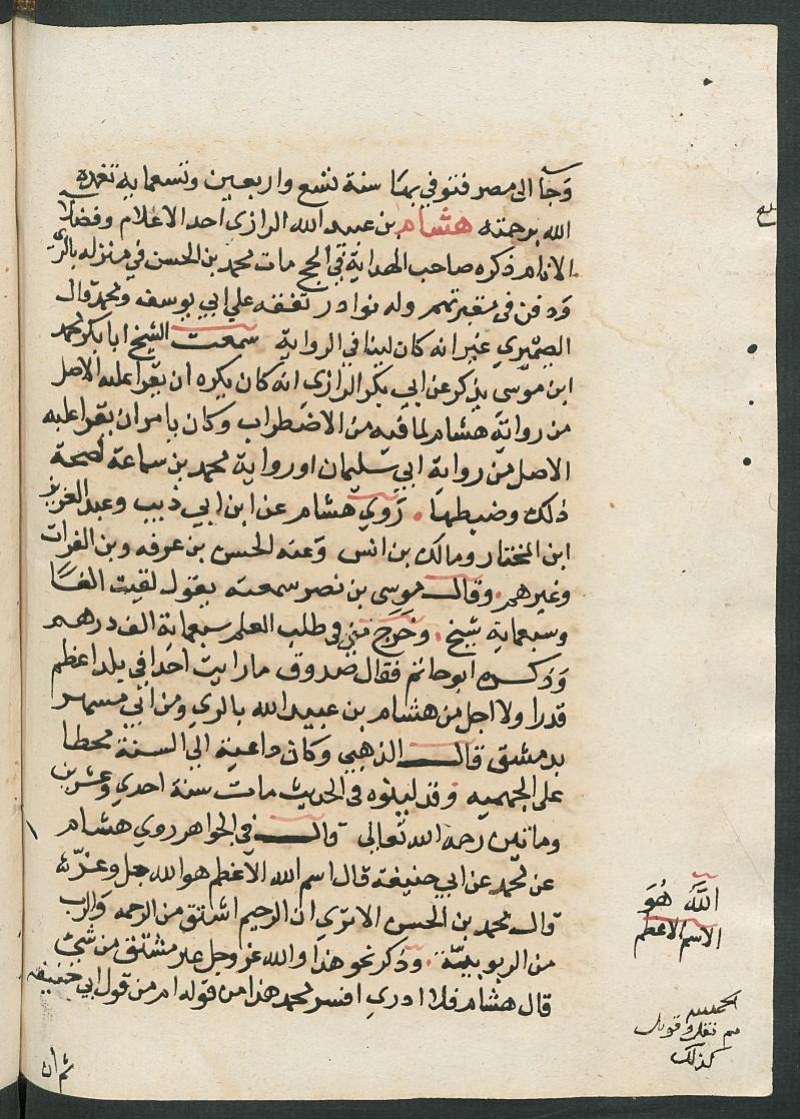 وجآ الى مصر فتوفي بها سنة تسع واربعين وتسعماية تغمده
الله برحمته هشام بن عبيد الله الرازي احد الاعلام وفضلا
الانام ذكره صاحب الهداية في الحج مات محمد بن الحسن في منزله بالري
ودفن في مقبرتهم وله نوادر تفقه على ابي يوسف ومحمد قال
الصميري غير انه كان لينا في الرواية سمعت الشيخ ابا بكر محمد
ابن موسى يذكر عن ابي بكر الرازي انه كان يكره ان يقرا عليه الاصل
من رواية هشام لما فيه من الاضطراب وكان يامر ان يقرا عليه
الاصل من رواية ابي سليمان او رواية محمد بن سماعة لصحة
ذلك وضبطها . روي هشام عن ابن ابي ذيب وعبد العزيز
ابن المختار ومالك بن انس وعنه الحسن بن عرفه وبن الفرات
وغيرهم . وقال موسى بن نصر سمعته يقول لقيت الفا
وسبعماية شيخ . وخرج مني في طلب العلم سبعماية الف درهم
وذكره ابو حاتم فقال صدوق ما رايت احدا في بلد اعظم
قدرا ولا اجل من هشام بن عبيد الله بالري ومن ابي مسهر
بدمشق قال الذهبي وكان داعية الي السنة محطا
على الجهميه وقد لينوه في الحديث مات سنة احدي وعشرين
وماتين رحمه الله تعالى قال في الجواهر روي هشام
عن محمد عن ابي حنيفة قال اسم الله الاعظم هو الله جل وعز
قال محمد بن الحسن الا ترى ان الرحيم اشتق من الرحمه والرب
من الربوبية . وذكر نحو هذا والله عز وجل غير مشتق من شئ
قال هشام فلا ادري افسر محمد هذا من قوله ام من قول ابي حنيفه
الله هو
الاسم الاعظم
كذلك
ثم ان